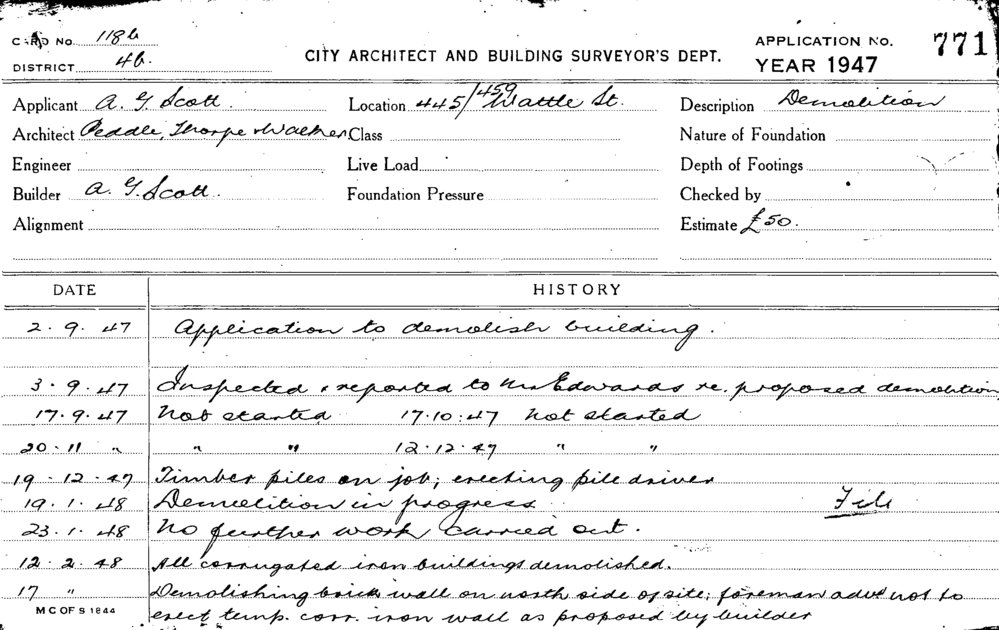 CARD No. 118b
DISTRICT 4b.
CITY ARCHITECT AND BUILDING SURVEYOR'S DEPT.
APPLICATION No. 771
YEAR 1947
Applicant A. G. Scott. Location 445/459 Wattle St. Description Demolition
Architect Peddle, Thorpe & Walker Class Nature of Foundation
Engineer Live Load Depth of Footings
Builder A. G. Scott. Foundation Pressure Checked by
Alignment Estimate £50.
DATE HISTORY
2. 9. 47 Application to demolish building.
3. 9. 47 Inspected & reported to Mr Edwards re. proposed demolition
17. 9. 47 Not started 17.10.47 Not started
20. 11 " " " 12.12.47 " "
19. 12. 47 Timber piles on job; erecting pile driver
19. 1. 48 Demolition in progress. File
23. 1. 48 No further work carried out.
12. 2. 48 All corrugated iron buildings demolished.
17 " Demolishing brick wall on north side of site; foreman advd not to
M C OF S 1844 erect temp. corr. iron wall as proposed by builder